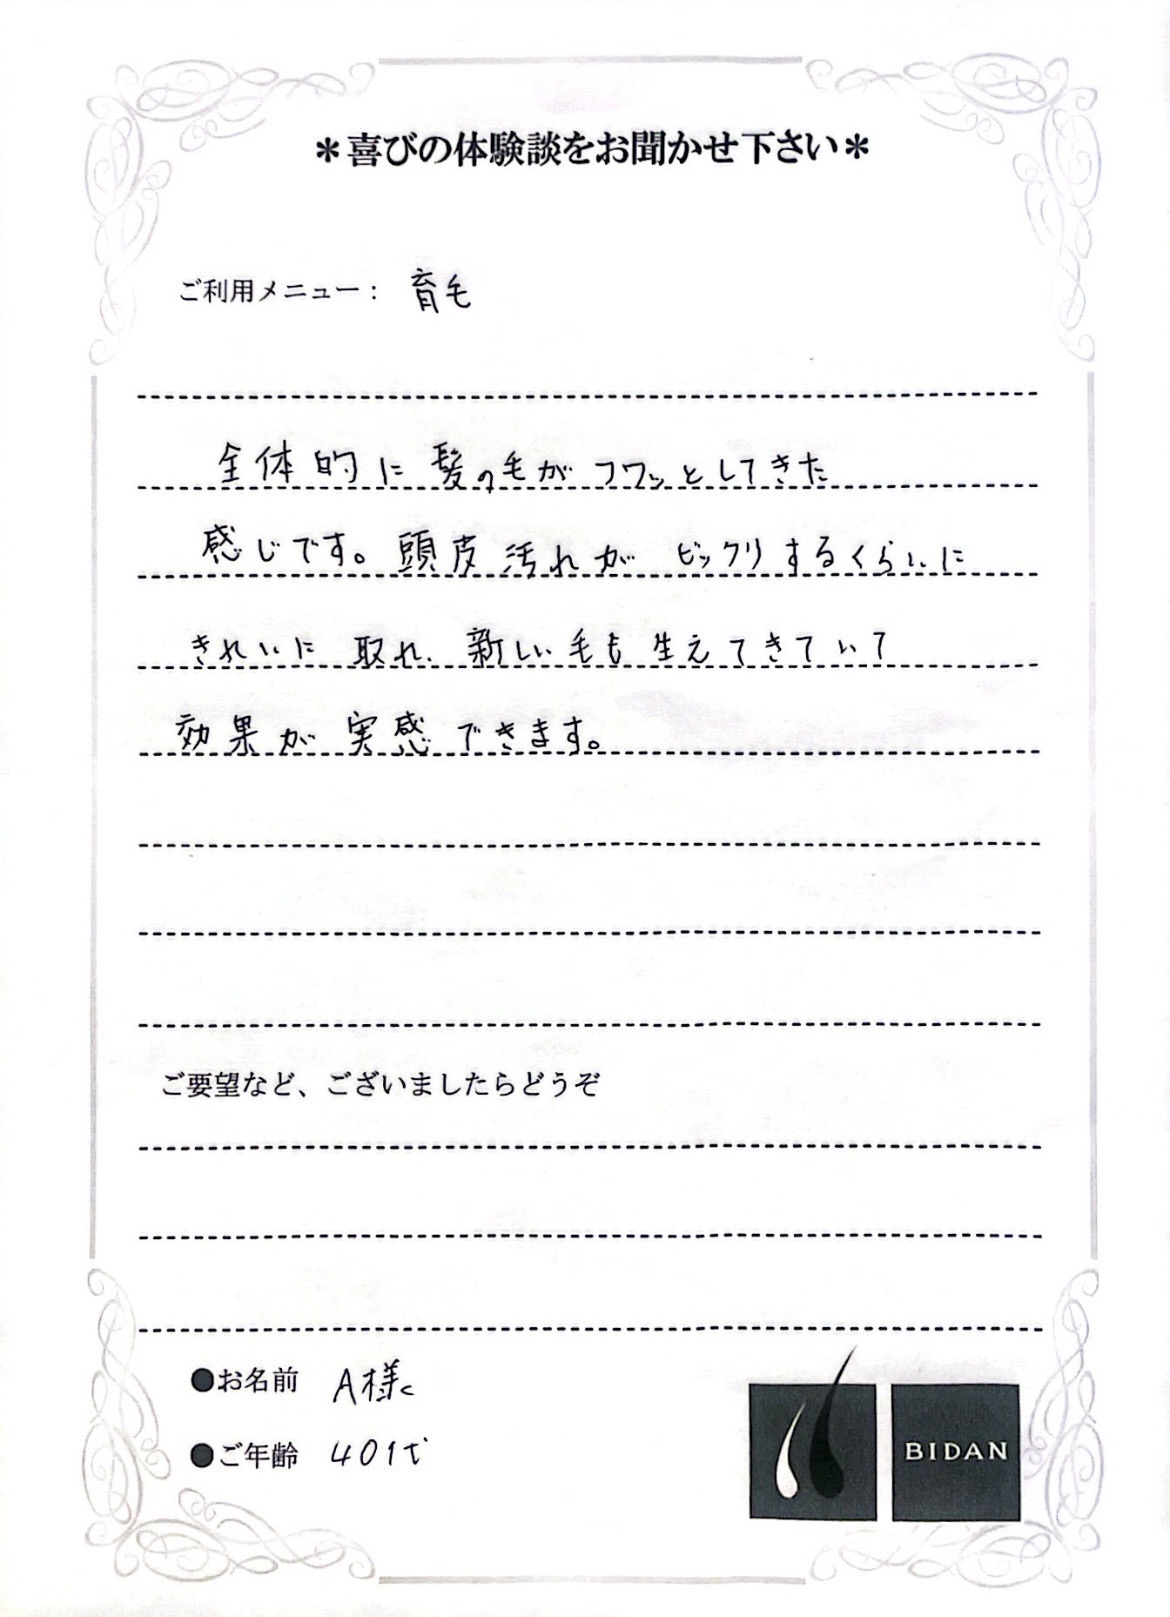 ＊喜びの体験談をお聞かせ下さい＊
ご利用メニュー： 育毛
全体的に髪の毛がフワッとしてきた
感じです。頭皮汚れがビックリするくらいに
きれいに取れ、新しい毛も生えてきていて
効果が実感できます。
ご要望など、ございましたらどうぞ
●お名前 A様
●ご年齢 40代
BIDAN